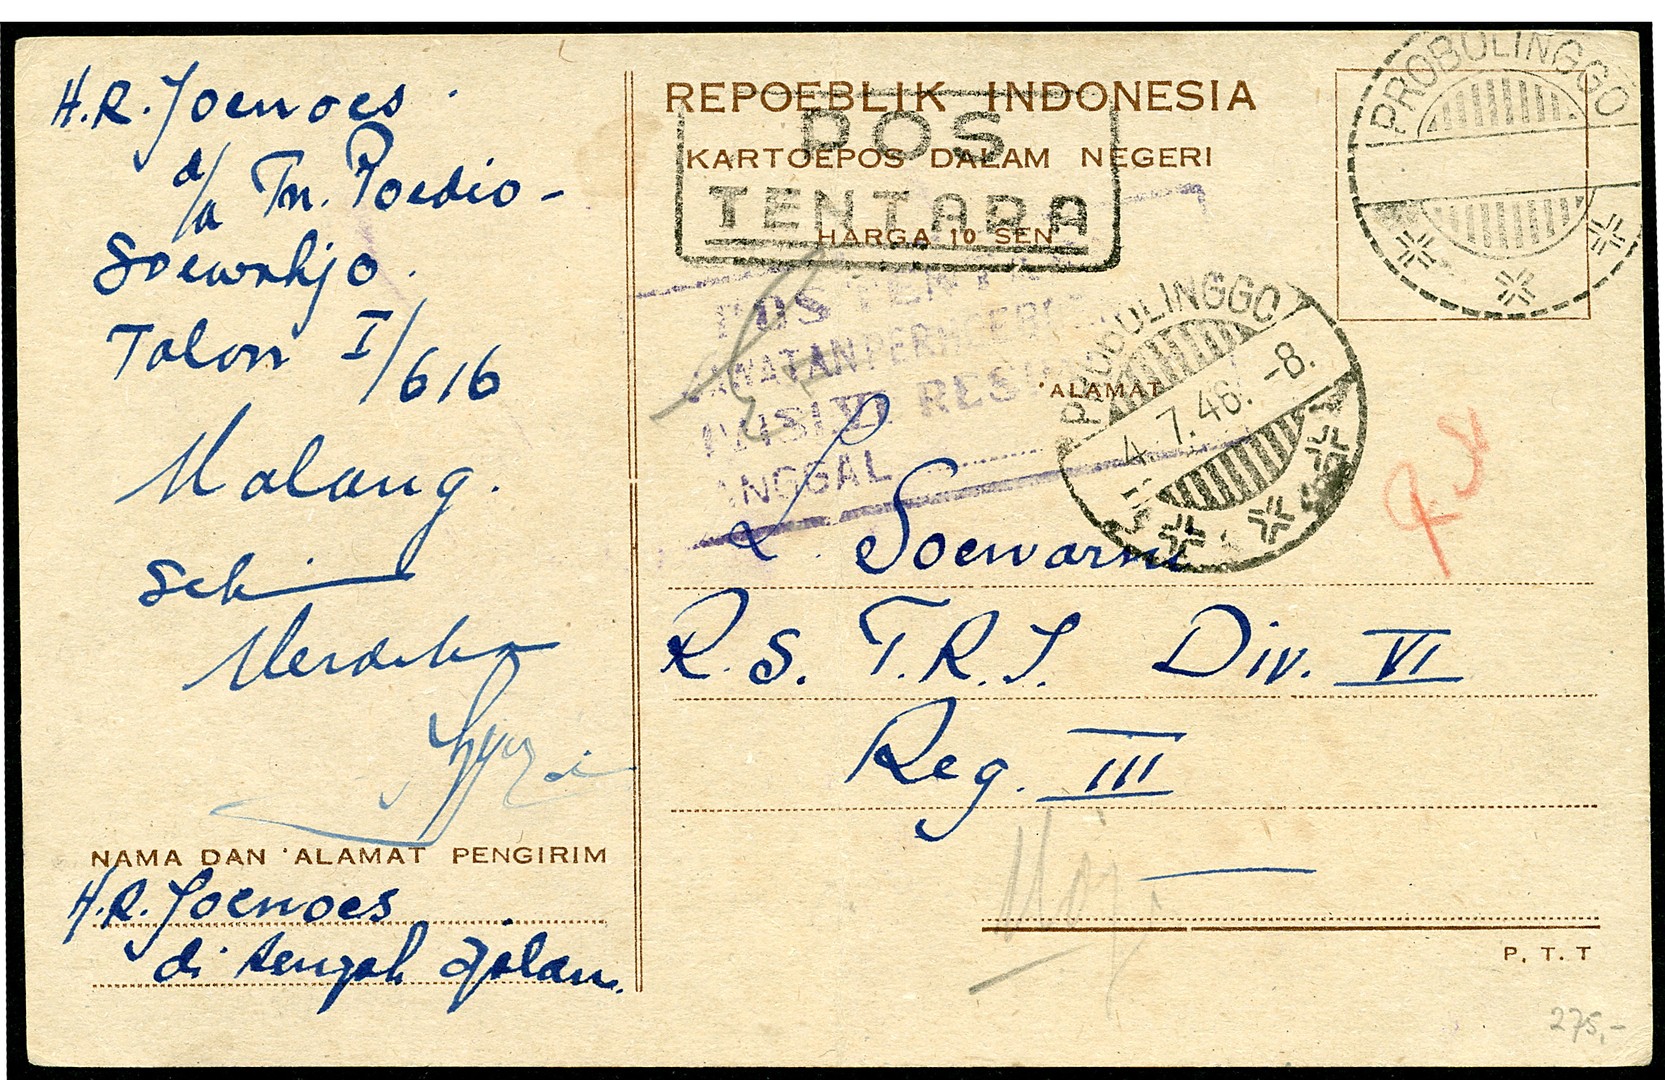 H.R. Joenoes
d/a Tn. Poedio-
Soewahjo.
Talon I/616
Malang.
Sekian
Merdeka
NAMA DAN ALAMAT PENGIRIM
H.R. Joenoes
di tengah djalan.
REPOEBLIK INDONESIA
KARTOEPOS DALAM NEGERI
HARGA 10 SEN
POS
TENTARA
PROBOLINGGO
POS TENT
ANGGAL
PROBOLINGGO
4.7.46. -8.
ALAMAT
Soewarni
R.S. T.R.I. Div. VI
Reg. III
P. T. T
275,-